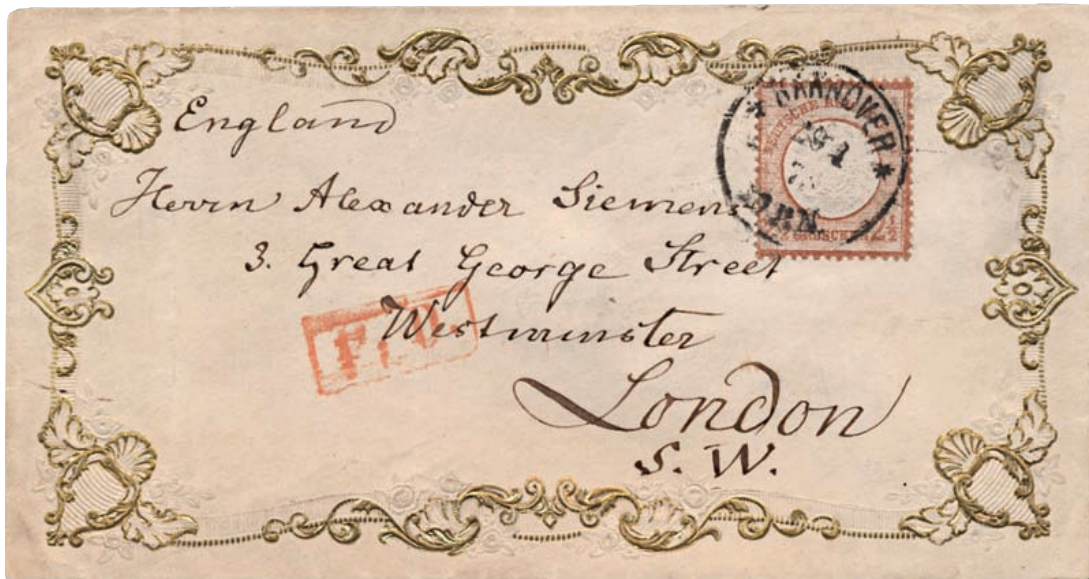 England
Herrn Alexander Siemens
3. Great George Street
Westminster
London
S. W.
HANNOVER
GROSCHEN 2½